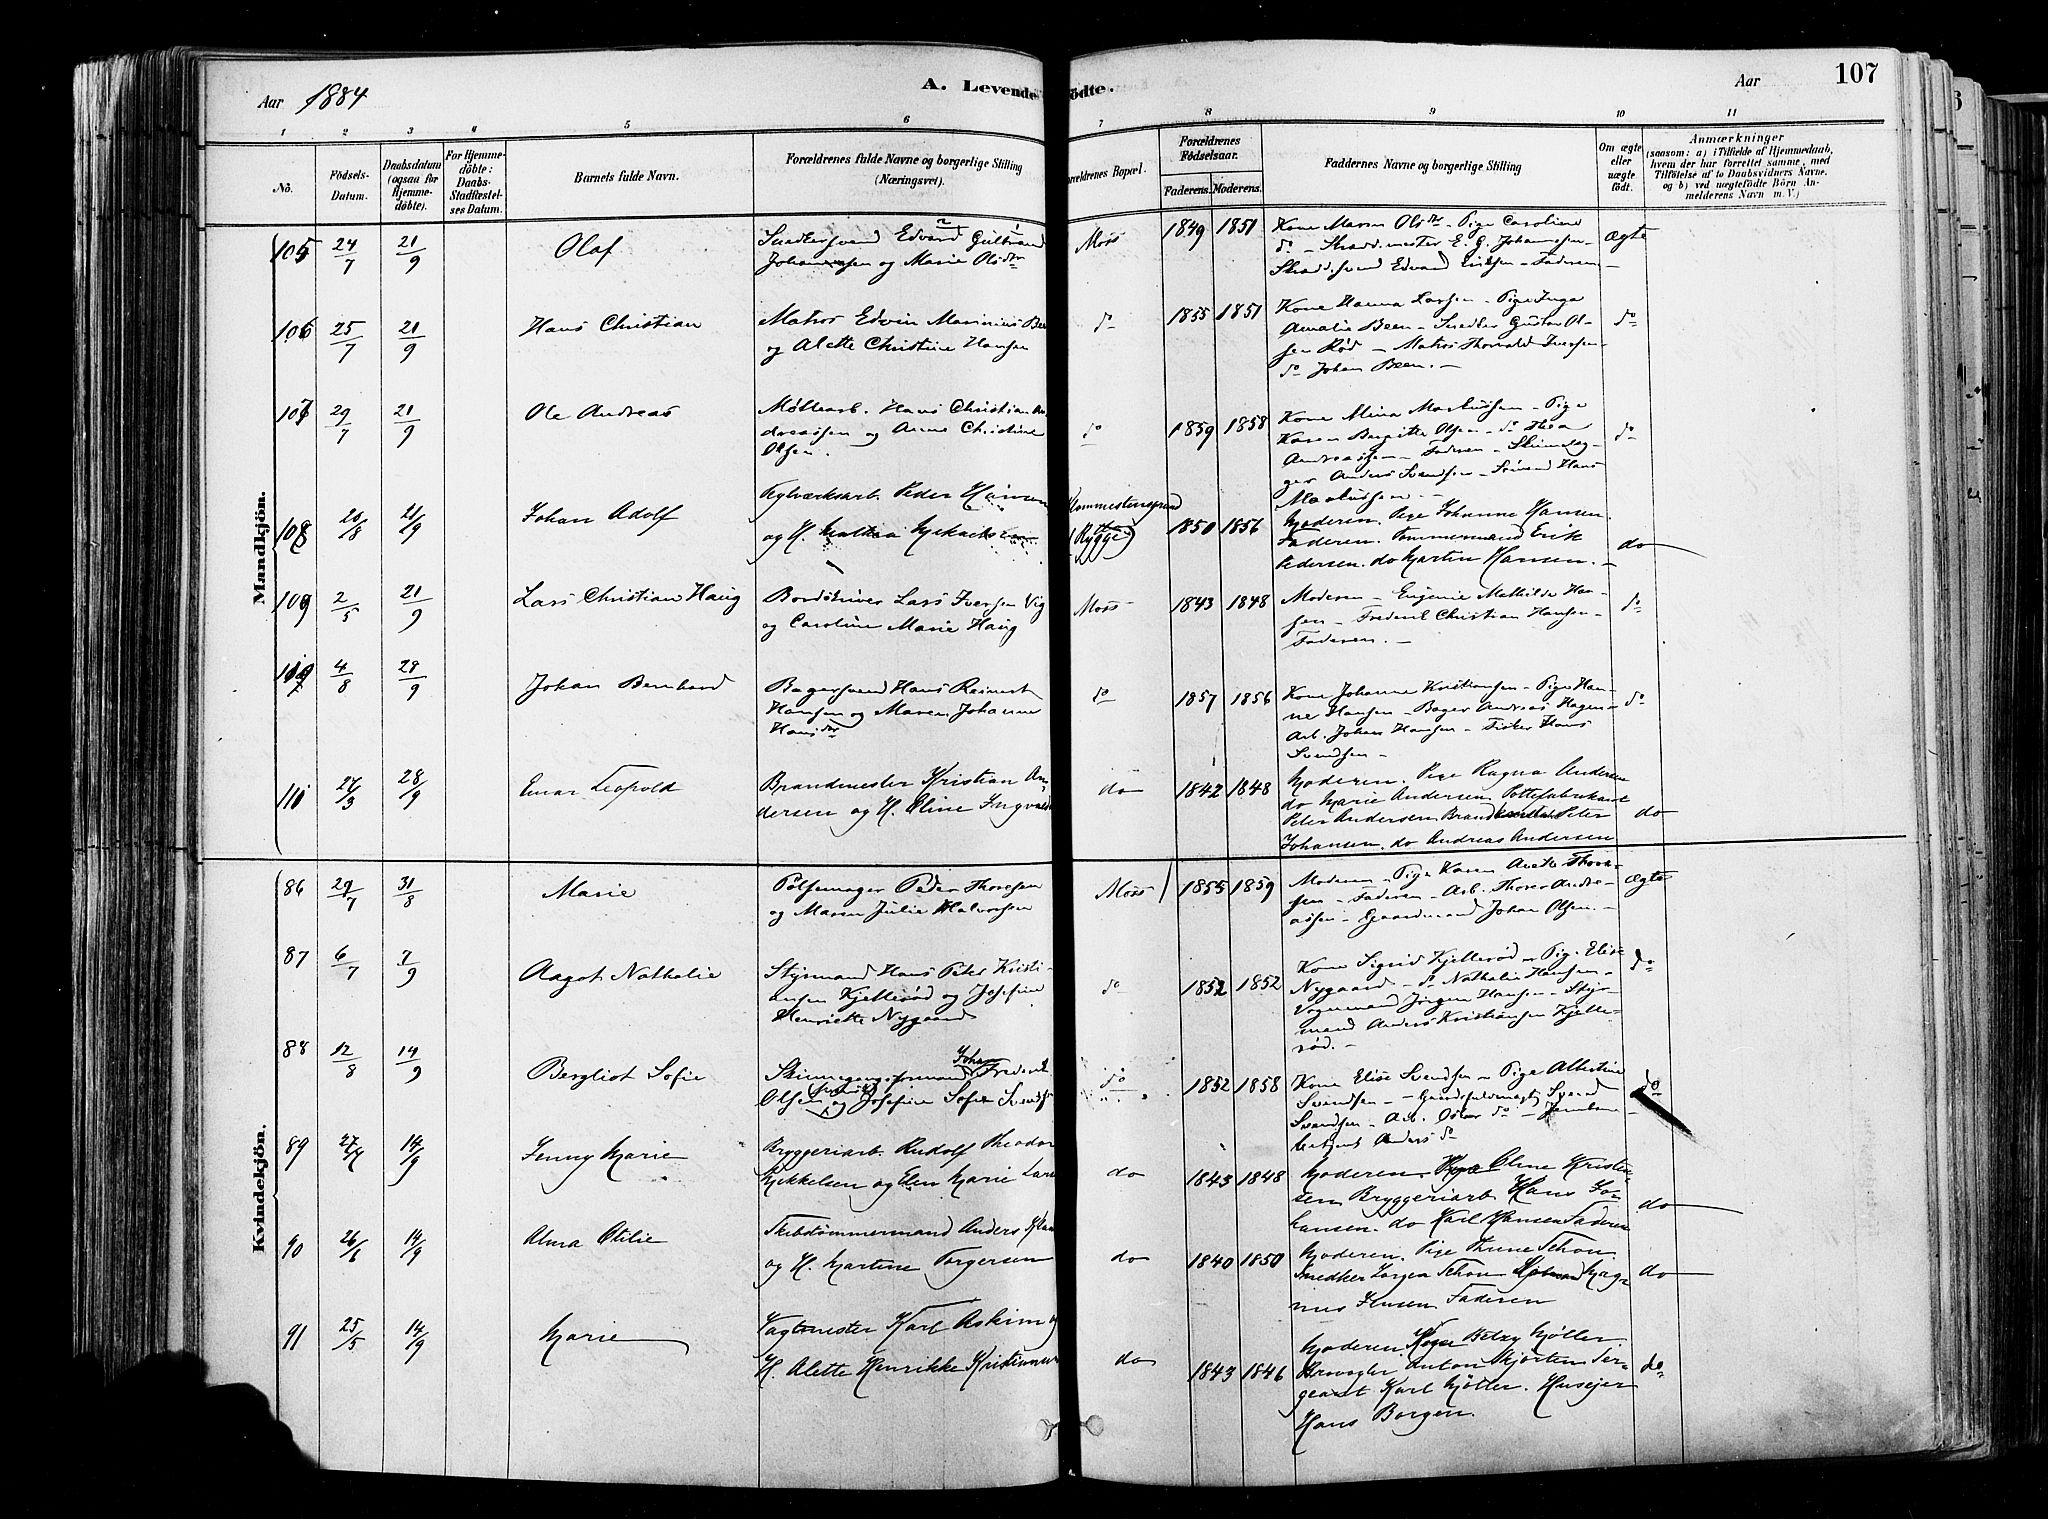 Aar 1884
A. Levende
ødte.
Aar
107
1 2 3 4 5 6 7 8 9 10 11
No.
Fødsels-Datum.
Daabsdatum (ogsaa for Hjemme-døbte).
For Hjemme-døbte: Daabs-Stadfæstel-ses Datum.
Barnets fulde Navn.
Forældrenes fulde Navne og borgerlige Stilling (Næringsvei).
Forældrenes Bopæl.
Forældrenes Fødselsaar.
Faderens. Moderens.
Faddernes Navne og borgerlige Stilling
Om ægte eller uægte født.
Anmærkninger
(saasom: a) i Tilfælde af Hjemmedaab,
hvem der har forrettet samme, med
Tilføielse af to Daabsvidners Navne.
og b) ved uegtefødte Børn An-
melderens Navn m. V.)
Mandkjön.
105 24/7 21/9 Olaf
Snedkersvend Edvard Gulbrand
Johannessen og Marie Olsdtr
Moss 1849 1851
Kone Maren Olsdtr - Pige Caroline
do - Skrædmester E. G. Johannesen -
Skrædsvend Edvard Eriksen - Faderen -
Ægte
106 25/7 21/9 Hans Christian
Matros Edvin Marinius Been
og Alette Christine Hansen
do 1855 1851
Kone Hanna Larsen - Pige Inga
Amalie Been - Snedker Gustav Ol-
sen Rød - Matros Thorvald Iversen -
do Johan Been. -
do
107 29/7 21/9 Ole Andreas
Møllearb. Hans Christian An-
dreassen og Anne Christine
Olsen.
do 1859 1858
Kone Mina Markussen - Pige
Karen Birgitte Olsen - do Thea
Andreassen - Faderen -
Anders Svendsen - Hans
Markussen. -
do
108 20/8 21/9 Johan Adolf
Teglværksarb. Peder Hansen
og H.
(Rygge) 1850 1856
Moderen. Pige Johanne Hansen.
Faderen. Tømmermand Erik
Pedersen. do Martin Hansen. -
do
109 2/5 21/9 Lars Christian Haug
Bordskriver Lars Iversen Vig
og Caroline Marie Haug
Moss 1843 1848
Moderen - Eugenie Mathilde Han-
sen - Frederik Christian Hansen -
Faderen. -
do
110 4/8 28/9 Johan Bernhard
Bagersvend Hans Rasmus
Hansen og Maren Johanne
Hansdtr
do 1857 1856
Kone Johanne Kristiansen - Pige Han-
ne Hansen - Bager Andreas Hagen -
Arb. Johan Hansen - Fisker Hans
Svendsen -
do
111 27/3 28/9 Einar Leopold
Brandmester Kristian An-
dersen og H. Oline Ingvald
do 1842 1848
Moderen. Pige Ragna Andersen
do Marie Andersen Pottefabrikant
Peter Andersen Peter
Johansen. do Andreas Andersen
do
Kvindekjön.
86 29/7 31/8 Marie
Pølsemager Peder Thoresen
og Maren Julie Halvorsen
Moss 1855 1859
Moderen - Pige Karen Anette Thore-
sen - Faderen - Arb. Thorer Andre-
assen - Gaardmand Johan Olsen. -
Ægte
87 6/7 7/9 Aagot Nathalie
Styrmand Hans Peter Kristi-
ansen Kjellerød og Josefine
Henriette Nygaard
do 1852 1852
Kone Sigrid Kjellerød - Pige Elise
Nygaard - do Nathalie Hansen -
Vognmand Jørgen Hansen - Styr-
mand Anders Kristiansen Kjelle-
rød. -
do
88 12/8 14/9 Bergliot Sofie
Johan Frederik
Olsen og Josefine Sofie Svendsen
do 1852 1858
Kone Elise Svendsen - Pige Albertine
Svendsen - Svend
Svendsen - Arb. Oskar do - Jernbane-
betjent Anders do
do
89 27/7 14/9 Jenny Marie
Bryggeriarb. Rudolf Theodor
Mikkelsen og Elen Marie Lars
do 1843 1848
Moderen. Oline Kristen-
sen Bryggeriarb. Hans Jo-
hansen. do Karl Hansen Faderen
do
90 26/6 14/9 Alma Otilie
Skibstømmermand Anders
og H. Martine Torgersen
do 1840 1850
Moderen. Pige Thrine Schou
Snedker Jørgen Schou Mag-
nus Jensen Faderen
do
91 25/5 14/9 Marie
Vagtmester Karl Askim og
H. Alette Henrikke Kristiansen
do 1843 1846
Moderen Betzy Møller
Anton Skjorten Ser-
geant Karl Møller. Husejer
Hans Borgen.
do